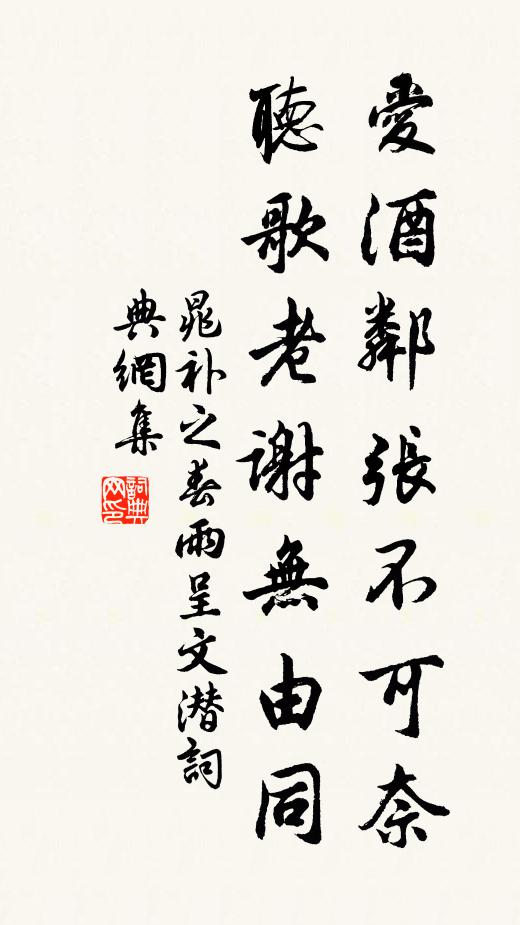 愛酒鄰張不可奈
聽歌老謝無由同
晁补之春雨呈文潜詞
典網集
詞典网印